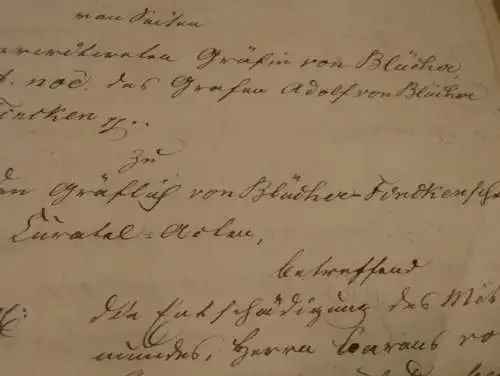 von Seiten
verwittweten Gräfin von Blücher,
t. noe. des Grafen Adolf von Blücher
Fincken pp..
Zu
den Gräflich von Blücher-Finckensche
Curatel-Acten,
betreffend
die Entschädigung des Mit
mundes, Herrn Barons vo